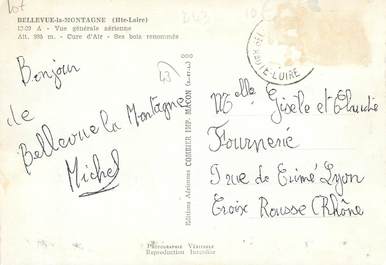 Lot
BELLEVUE-la-MONTAGNE (Hte-Loire)
A - Vue générale aérienne
Alt. m - Cure d'Air - Ses bois renommés
43
Bonjour
de
Bellevue la Montagne
Michel
Editions Aériennes COMBIER IMP. MACON
PHOTOGRAPHIE VÉRITABLE
Reproduction Interdite
HAUTE-LOIRE
Melle Gisèle et Claudie
Fournerie
rue de Lyon
Croix Rousse (Rhône)